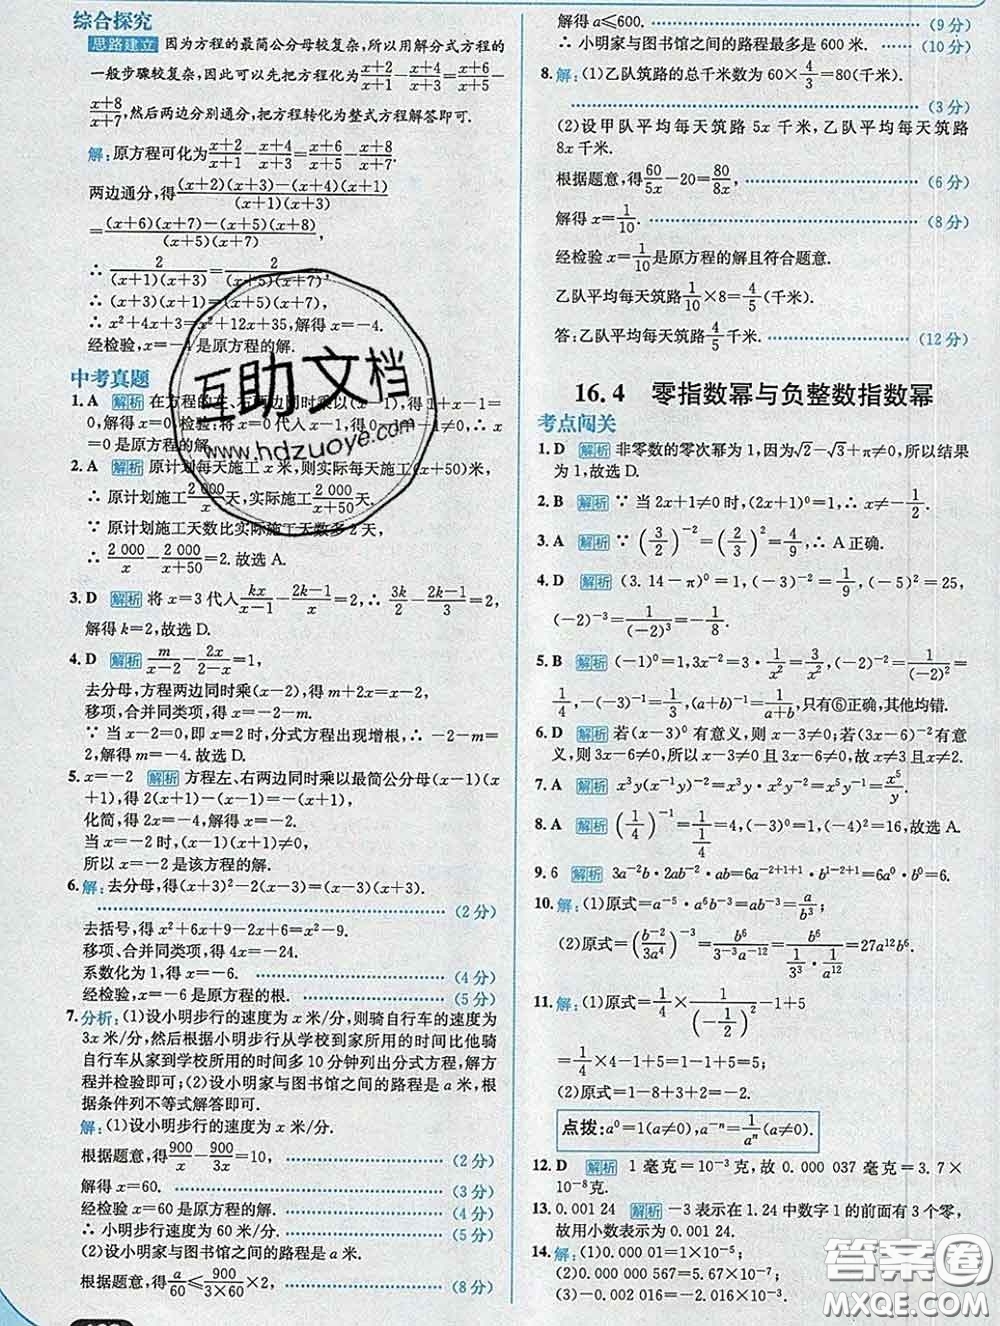 综合探究
思路建立 因为方程的最简公分母较复杂,所以用解分式方程的
一般步骤较复杂,因此可以先把方程化为(x+2)/(x+1)-(x+4)/(x+3)=(x+6)/(x+5)-
(x+8)/(x+7),然后两边分别通分,把方程转化为整式方程解答即可.
解:原方程可化为(x+2)/(x+1)-(x+4)/(x+3)=(x+6)/(x+5)-(x+8)/(x+7).
两边通分,得((x+2)(x+3)-(x+4)(x+1))/((x+1)(x+3))
=((x+6)(x+7)-(x+5)(x+8))/((x+5)(x+7)),
∴ 2/((x+1)(x+3))=2/((x+5)(x+7)),
∴ x²+4x+3=x²+12x+35,解得 x=-4.
经检验,x=-4是原方程的解.
中考真题
1. A 解析 在方程的左、右两边同时乘以(x-1),得1+x-1=
0,解得 x=0.检验:将 x=0 代入 x-1,得 0-1=-1≠0,
所以 x=0 是原方程的解.
2. A 解析 原计划每天施工 x 米,则实际每天施工(x+50)米,
∴ 原计划施工2 000/x天,实际施工2 000/(x+50)天.
∵ 原计划施工天数比实际施工天数多 2 天,
∴ 2 000/x-2 000/(x+50)=2. 故选 A.
3. D 解析 将 x=3 代入kx/(x-1)-(2k-1)/x=2,∴ 3k/2-(2k-1)/3=2,
解得 k=2,故选 D.
4. D 解析 m/(x-2)-2x/(2-x)=1,
去分母,方程两边同时乘(x-2),得 m+2x=x-2.
移项,合并同类项,得 x=-2-m.
∵ 当 x-2=0,即 x=2 时,分式方程出现增根,∴ -2-m=
2,解得 m=-4.故选 D.
5. x=-2 解析 方程左、右两边同时乘以最简公分母(x-1)(x
+1),得 2(x-1)-(x+1)=-(x+1),
化简,得 2x=-4,解得 x=-2.
当 x=-2 时,(x-1)(x+1)≠0,
所以 x=-2 是该方程的解.
6. 解:去分母,得(x+3)²-2(x-3)=(x-3)(x+3).
(2分)
去括号,得 x²+6x+9-2x+6=x²-9.
移项、合并同类项,得 4x=-24.
系数化为 1,得 x=-6. (4分)
经检验,x=-6 是原方程的根. (5分)
7. 分析:(1)设小明步行的速度为 x 米/分,则骑自行车的速度为
3x 米/分,然后根据小明步行从学校到家所用的时间比他骑
自行车从家到学校所用的时间多 10 分钟列出分式方程,解方
程并检验即可;(2)设小明家与图书馆之间的路程是 a 米,根
据条件列不等式解答即可.
解:(1)设小明步行的速度为 x 米/分.
根据题意,得900/x-900/3x=10, (2分)
解得 x=60. (3分)
经检验 x=60 是原方程的解. (4分)
∴ 小明步行速度为 60 米/分. (5分)
(2)设小明家与图书馆之间的路程是 a 米.
根据题意,得a/60≤900/(3×60)×2, (8分)
解得 a≤600. (9分)
∴ 小明家与图书馆之间的路程最多是 600 米. (10分)
8. 解:(1)乙队筑路的总千米数为 60×4/3=80(千米).
(3分)
(2)设甲队平均每天筑路 5x 千米,乙队平均每天筑路
8x千米.
根据题意,得60/5x-20=80/8x, (6分)
解得 x=1/10. (8分)
经检验 x=1/10是原方程的解且符合题意.
乙队平均每天筑路1/10×8=4/5(千米).
答:乙队平均每天筑路4/5千米. (12分)
16.4 零指数幂与负整数指数幂
考点闯关
1. D 解析 非零数的零次幂为 1,因为√2-√3+π≠0,所以结果
为 1,故选 D.
2. B 解析 ∵ 当 2x+1≠0 时,(2x+1)⁰=1,∴ x≠-1/2.
3. A 解析 ∵ (3/2)⁻²=(2/3)²=4/9,∴ A正确.
4. D 解析 (3.14-π)⁰=1,(-3)⁻²=1/9,(-5)²=25,
(-2)⁻³=1/(-2)³=1/-8.
5. B 解析 (-1)⁰=1,3x⁻²=3·1/x²=3/x²,(-2)⁻²=1/(-2)²=
1/4,-(-3)⁻¹=1/3,(a+b)⁻¹=1/(a+b),只有⑥正确,其他均错.
6. D 解析 若(x-3)⁰有意义,则 x-3≠0;若(3x-6)⁻²有意
义,则 3x-6≠0,所以 x-3≠0 且 3x-6≠0,故 x≠3 且 x≠2.
7. A 解析 x³y(x⁻¹y)⁻²=x³y·x²y⁻²=x⁵y⁻¹=x⁵/y.
8. A 解析 (1/4)⁻¹=1/(1/4)=4,(-1)⁰=1,(-4)²=16,故选 A.
9. 6 解析 3a⁻²b·2ab⁻²·ab=6a⁻²⁺¹⁺¹·b¹⁻²⁺¹=6a⁰·b⁰=6.
10. 解:(1)原式=a⁻⁵·a⁶b⁻³=ab⁻³=a/b³;
(2)原式=(b⁻²/3a⁴)⁻³=b⁶/(3⁻³a⁻¹²)=b⁶/(1/3³·1/a¹²)=27a¹²b⁶.
11. 解:(1)原式=1/4×1/(-1/2)²-1+5
=1/4×4-1+5=1-1+5=5;
(2)原式=1-8+3+2=-2.
点拨:a⁰=1(a≠0),a⁻ⁿ=1/aⁿ(a≠0).
12. D 解析 1 毫克=10⁻³ 克,故 0.000 037 毫克=3.7×
10⁻⁸克.
13. 0.001 24 解析 -3 表示在 1.24 中数字 1 的前面有 3 个零,
故用小数表示为 0.001 24.
14. 解:(1)0.000 01=1×10⁻⁵;
(2)0.000 000 567=5.67×10⁻⁷;
(3)-0.002 016=-2.016×10⁻³.
互助文档
www.hdzuoye.com
答案圈
MXQE.COM